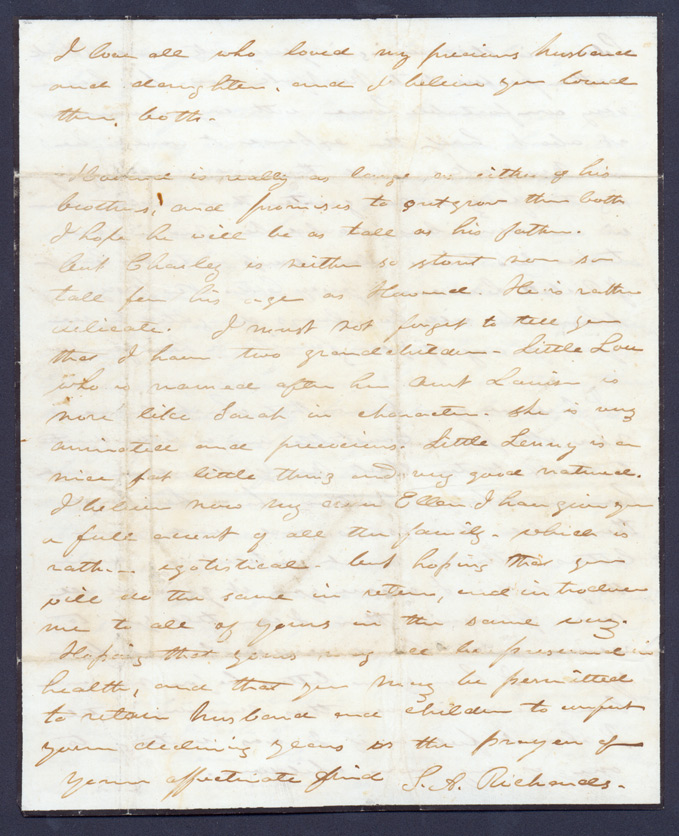 I love all who loved my precious husband
and daughter, and I believe you loved
them both.
Howard is really as large as either of his
brothers, and promises to outgrow them both
I hope he will be as tall as his father.
but Charley is neither so stout nor so
tall for his age as Howard. He is rather
delicate. I must not forget to tell you
that I have two grandchildren - Little Lou
who is named after her Aunt Louisa is
more like Sarah in character. She is very
animated and precocious. Little Lenny is a
nice fat little thing and very good natured.
I believe now my dear Ellen I have given you
a full account of all the family - which is
rather egotistical - but hoping that you
will do the same in return, and introduce
me to all of yours in the same way.
Hoping that yours may all be preserved in
health, and that you may be permitted
to retain husband and children to comfort
your declining years is the prayer of
your affectionate friend S. A. Richards.